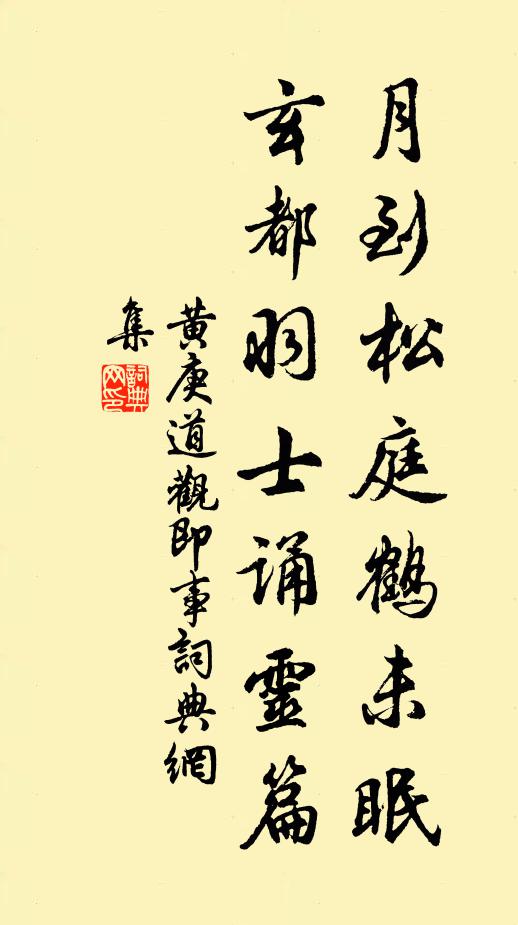 月到松庭鶴未眠
玄都羽士誦靈篇
黃庚道觀即事詞典網
集
詞典
网印